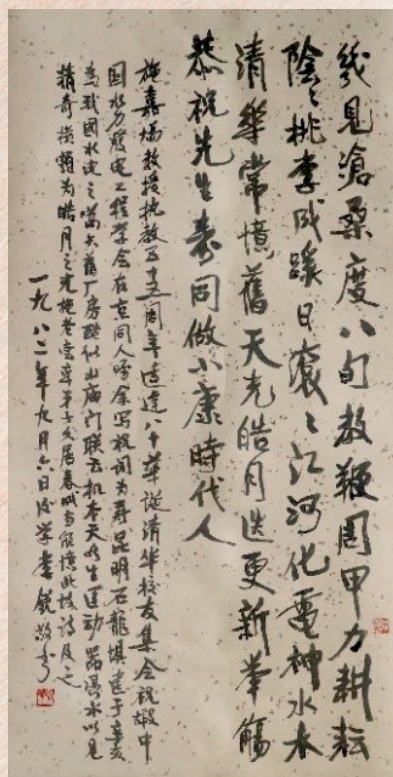 幾見滄桑度八旬教鞭周甲力耕耘
陰々桃李成蹊日滾々江河化電神水木
清華常憶舊天光皓月迭更新举觴
恭祝先生壽同做小康時代人
施嘉煬教授执教五十五周年适逢八十華诞清华校友集会祝嘏中
国水力發电工程学会在京同人嘱余写祝词为寿昆明石龍壩建于辛亥
为我國水电之嚆矢舊厂房酷似山庙门联云机本天然生运动器凭水以见
精奇横额为皓月之光施老尝率弟子久居春城当能憶此故诗及之
一九八二年九月六日后学李锐敬书